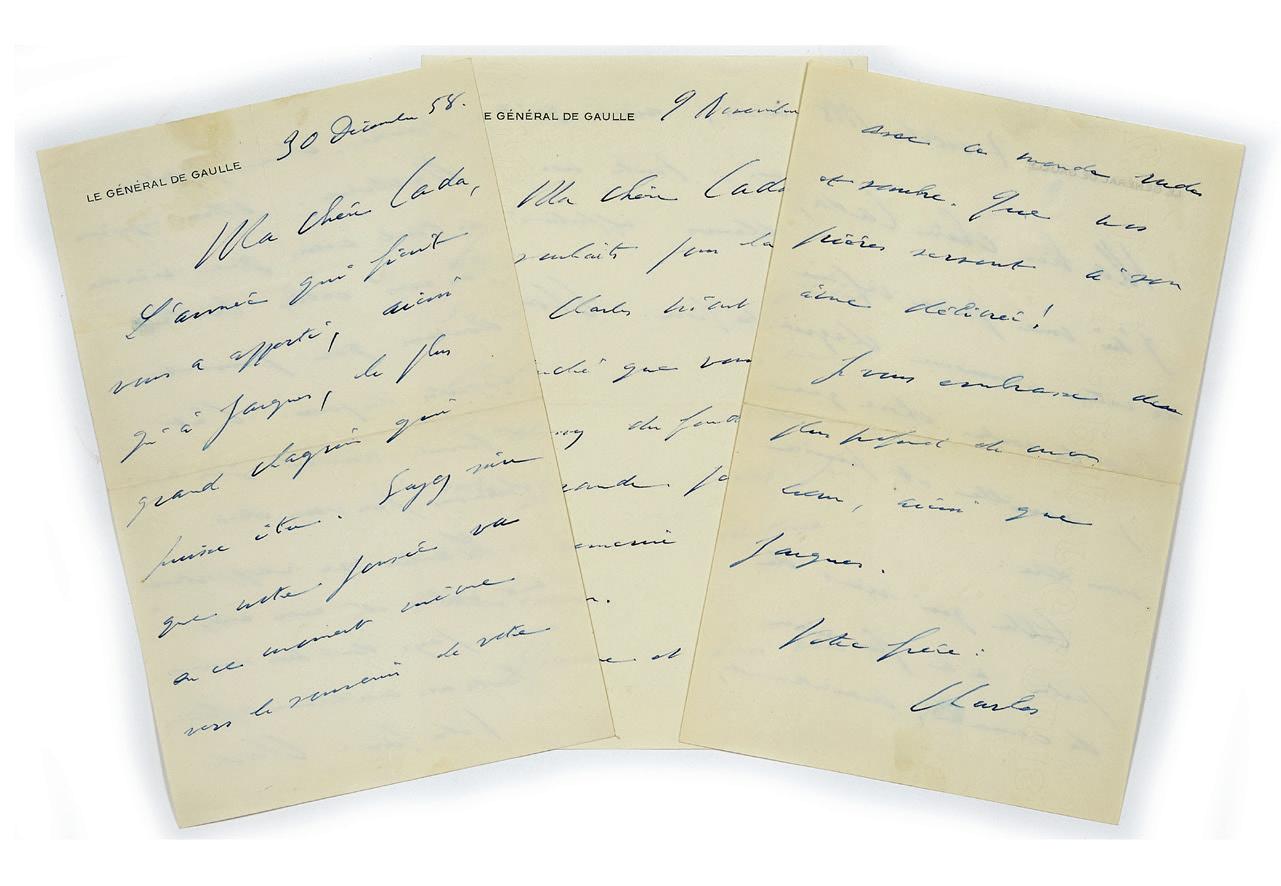 LE GÉNÉRAL DE GAULLE
30 Décembre 58.
Ma chère Cada,
L'année qui finit
vous a apporté, ainsi
qu'à Jacques, le plus
grand chagrin qui
puisse être. Soyez sûre
que notre pensée va
en ce moment même
vers le souvenir de votre
E GÉNÉRAL DE GAULLE
9 Novembre
Ma chère Cada
souhaits pour la
Charles m'ont
ché que vous
du fond
et
avec ce monde rude
et sombre. Que nos
prières servent à son
âme délivrée!
Je vous embrasse du
plus profond de mon
cœur, ainsi que
Jacques.
Votre frère:
Charles